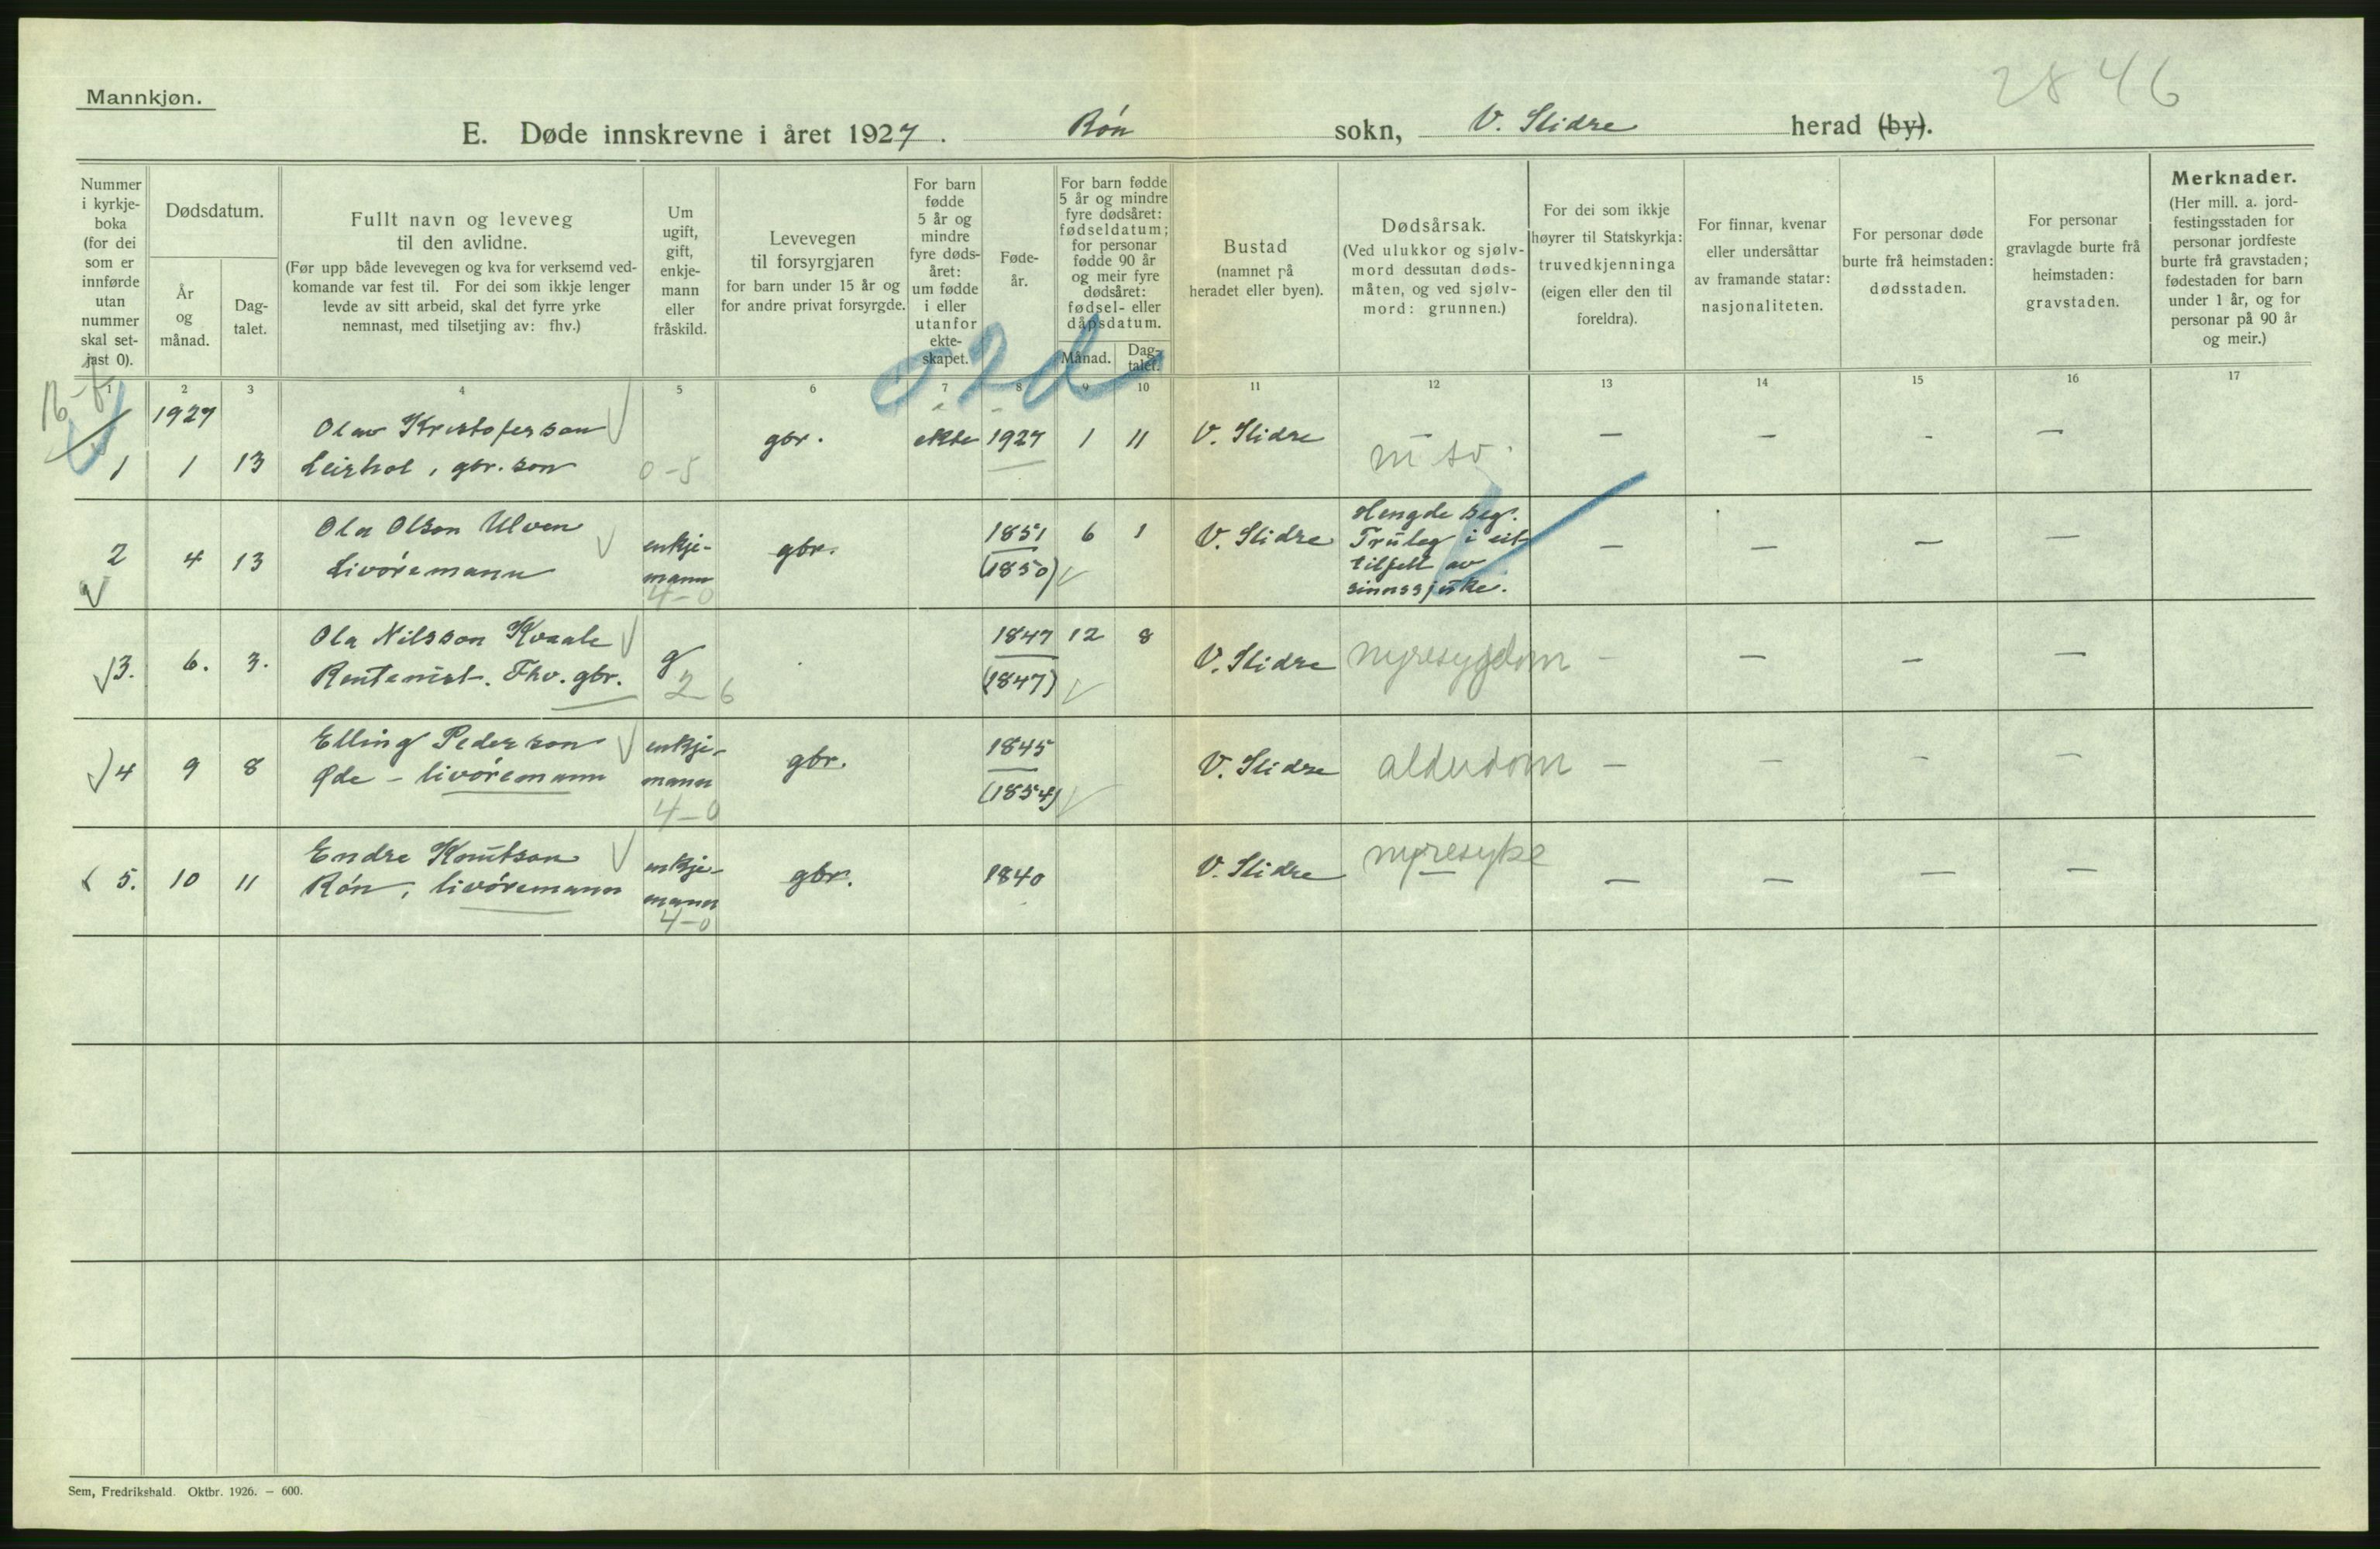 2846
Mannkjøn.
E. Døde innskrevne i året 1927. Røn sokn, V. Slidre herad (by).
Nummer i kyrkje-boka (for dei som er innførde utan nummer skal set-jast 0).
Dødsdatum.
År og månad.
Dag-talet.
Fullt navn og leveveg til den avlidne.
(Før upp både levevegen og kva for verksemd ved-komande var fest til. For dei som ikkje lenger levde av sitt arbeid, skal det fyrre yrke nemnast, med tilsetjing av: fhv.)
Um ugift, gift, enkje-mann eller fråskild.
Levevegen til forsyrgjaren for barn under 15 år og for andre privat forsyrgde.
For barn fødde 5 år og mindre fyre døds-året: um fødde i eller utanfor ekte-skapet.
Føde-år.
For barn fødde 5 år og mindre fyre dødsåret: fødseldatum; for personar fødde 90 år og meir fyre dødsåret: fødsel- eller dåpsdatum.
Månad.
Dag-talet.
Bustad (namnet på heradet eller byen).
Dødsårsak.
(Ved ulukkor og sjølv-mord dessutan døds-måten, og ved sjølv-mord: grunnen.)
For dei som ikkje høyrer til Statskyrkja: truvedkjenninga (eigen eller den til foreldra).
For finnar, kvenar eller undersåttar av framande statar: nasjonaliteten.
For personar døde burte frå heimstaden: dødsstaden.
For personar gravlagde burte frå heimstaden: gravstaden.
Merknader.
(Her mill. a. jord-festingsstaden for personar jordfeste burte frå gravstaden; fødestaden for barn under 1 år, og for personar på 90 år og meir.)
1 2 3 4 5 6 7 8 9 10 11 12 13 14 15 16 17
02d
1927
Olav Kristoferson
1 1 13 Leirhol, gbr. son 0-5 gbr. ekte 1927 1 11 V. Slidre — — - —
Ola Olson Ulven
2 4 13 Livøremann enkje-mann 4-0 gbr. 1851 (1850) 6 1 V. Slidre
Hengde seg.
Truleg i eit
tilfell av
sinnssjuke. — — — —
Ola Nilsson Kvaale
3. 6. 3. Rentenist. Fhv. gbr. g 2 6 1847 (1847) 12 8 V. Slidre nyresygdom - — — —
Elling Pederson
4 9 8 Øde - livøremann enkje-mann 4-0 gbr. 1845 (1854) V. Slidre alderdom — — - —
Endre Knutson
5. 10 11 Røn, livøremann enkje-mann 4-0 gbr. 1840 V. Slidre nyresyke — — — —
Sem, Fredrikshald. Oktbr. 1926. — 600.